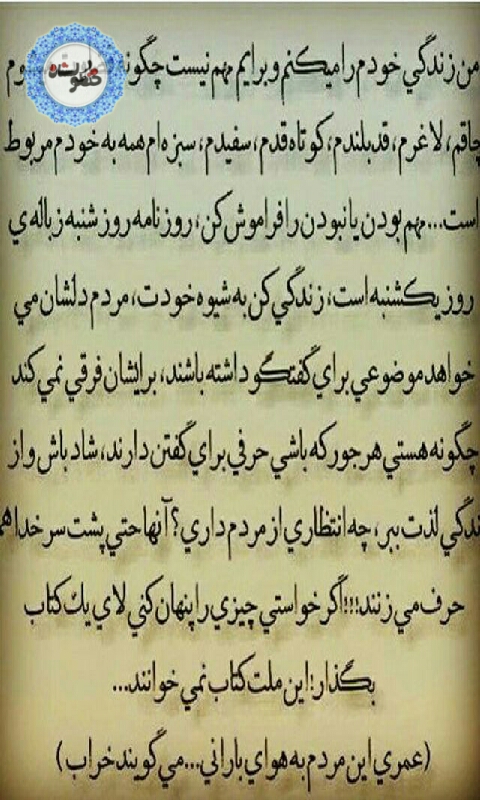 من زندگي خودم را ميكنم و برايم مهم نيست چگونه
چاقم، لاغرم، قد بلندم، كوتاه قدم، سفيدم، سبزه ام همه به خودم مربوط
است... مهم بودن يا نبودن را فراموش كن، روزنامه روز شنبه زباله ي
روز يكشنبه است، زندگي كن به شيوه خودت، مردم دلشان مي
خواهد موضوعي براي گفتگو داشته باشند، برايشان فرقي نمي كند
چگونه هستي هر جور كه باشي حرفي براي گفتن دارند، شاد باش و از
ندگي لذت ببر، چه انتظاري از مردم داري؟ آنها حتي پشت سر خدا هم
حرف مي زنند!!! اگر خواستي چيزي را پنهان كني لاي يك كتاب
بگذار! اين ملت كتاب نمي خوانند...
(عمري اين مردم به هواي باراني... مي گويند خراب)